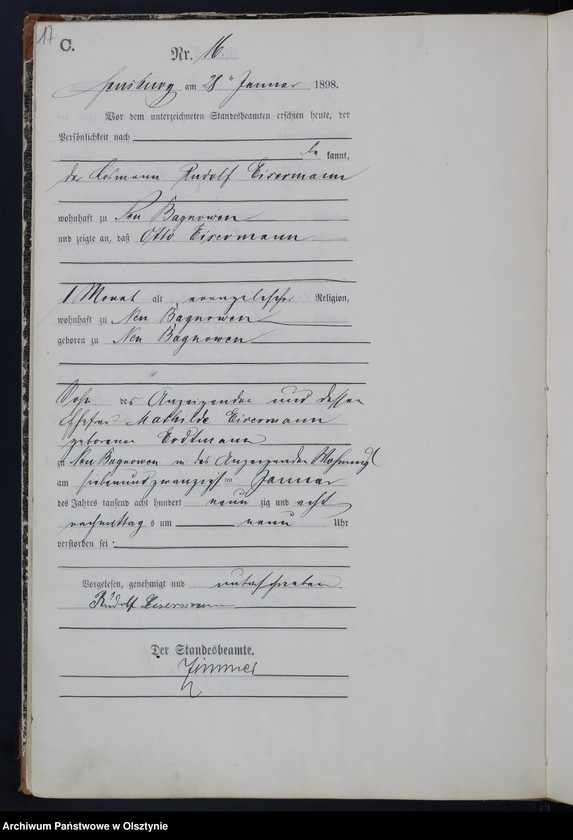 17
C.
Nr. 16
Sensburg am 28ten Januar 1898.
Vor dem unterzeichneten Standesbeamten erschien heute, der
Persönlichkeit nach
be kannt,
der Rudolf Eisermann
wohnhaft zu Neu Bagnowen
und zeigte an, daß Otto Eisermann
1 Monat alt, evangelischer Religion,
wohnhaft zu Neu Bagnowen
geboren zu Neu Bagnowen
Sohn des Anzeigenden und dessen
Ehefrau Mathilde Eisermann
geborener Erdtmann
zu Neu Bagnowen in des Anzeigenden Wohnung
am siebenundzwanzigsten Januar
des Jahres tausend acht hundert neun zig und acht
nachmittag s um neun Uhr
verstorben sei.
Vorgelesen, genehmigt und unterschrieben.
Rudolf Eisermann
Der Standesbeamte.
Zimmer
Archiwum Państwowe w Olsztynie